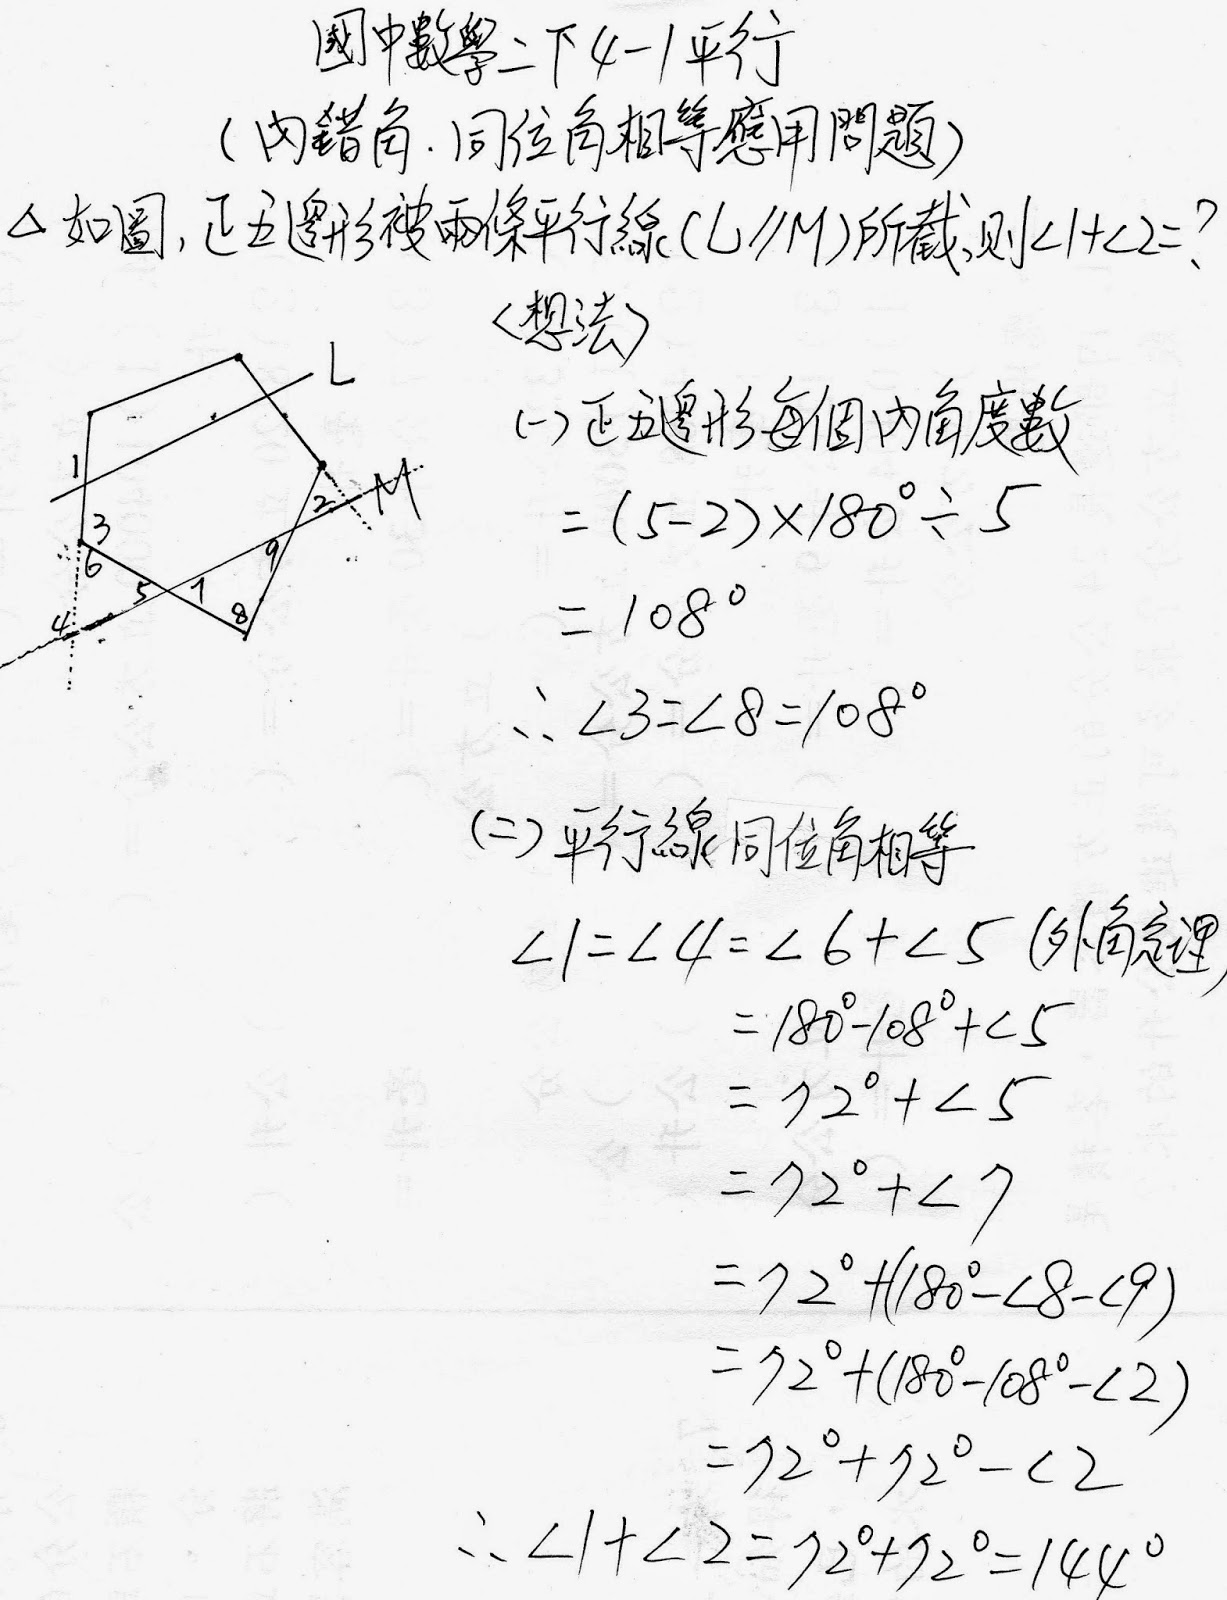 國中數學二下4-1平行
(內錯角.同位角相等應用問題)
△如圖,正五邊形被兩條平行線(L//M)所截,則∠1+∠2=?
<想法>
L
1
M
2
3
6
9
5
7
4
8
(一)正五邊形每個內角度數
=(5-2)×180°÷5
=108°
∴∠3=∠8=108°
(二)平行線同位角相等
∠1=∠4=∠6+∠5(外角定理)
=180°-108°+∠5
=72°+∠5
=72°+∠7
=72°+(180°-∠8-∠9)
=72°+(180°-108°-∠2)
=72°+72°-∠2
∴∠1+∠2=72°+72°=144°